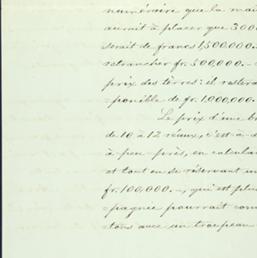 numéraire que la mai
aurait à placer que 300
serait de francs 1,500,000.-
retrancher fr. 500,000.-
prix des terres: il restera
-ponible de fr. 1,000,000.
Le prix d'une br
de 10 à 12 réaux, c'est-à-d
à peu-près, en calculan
et tout en se réservant un
fr. 100,000.-, qui est plus
-pagnie pourrait com
tons avec un troupeau